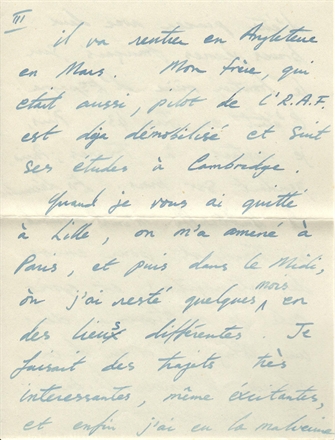 III
il va rentrer en Angleterre
en Mars. Mon frère, qui
était aussi, pilot de l'R.A.F.
est déja démobilisé et suit
ses études à Cambridge.
Quand je vous ai quitté
à Lille, on m'a amené à
Paris, et puis dans le Midi,
òn j'ai resté quelques mois en
des lieus différentes. Je
faisait des trajets très
interessantes, même éxcitantes,
et enfin j'ai eu la malveine